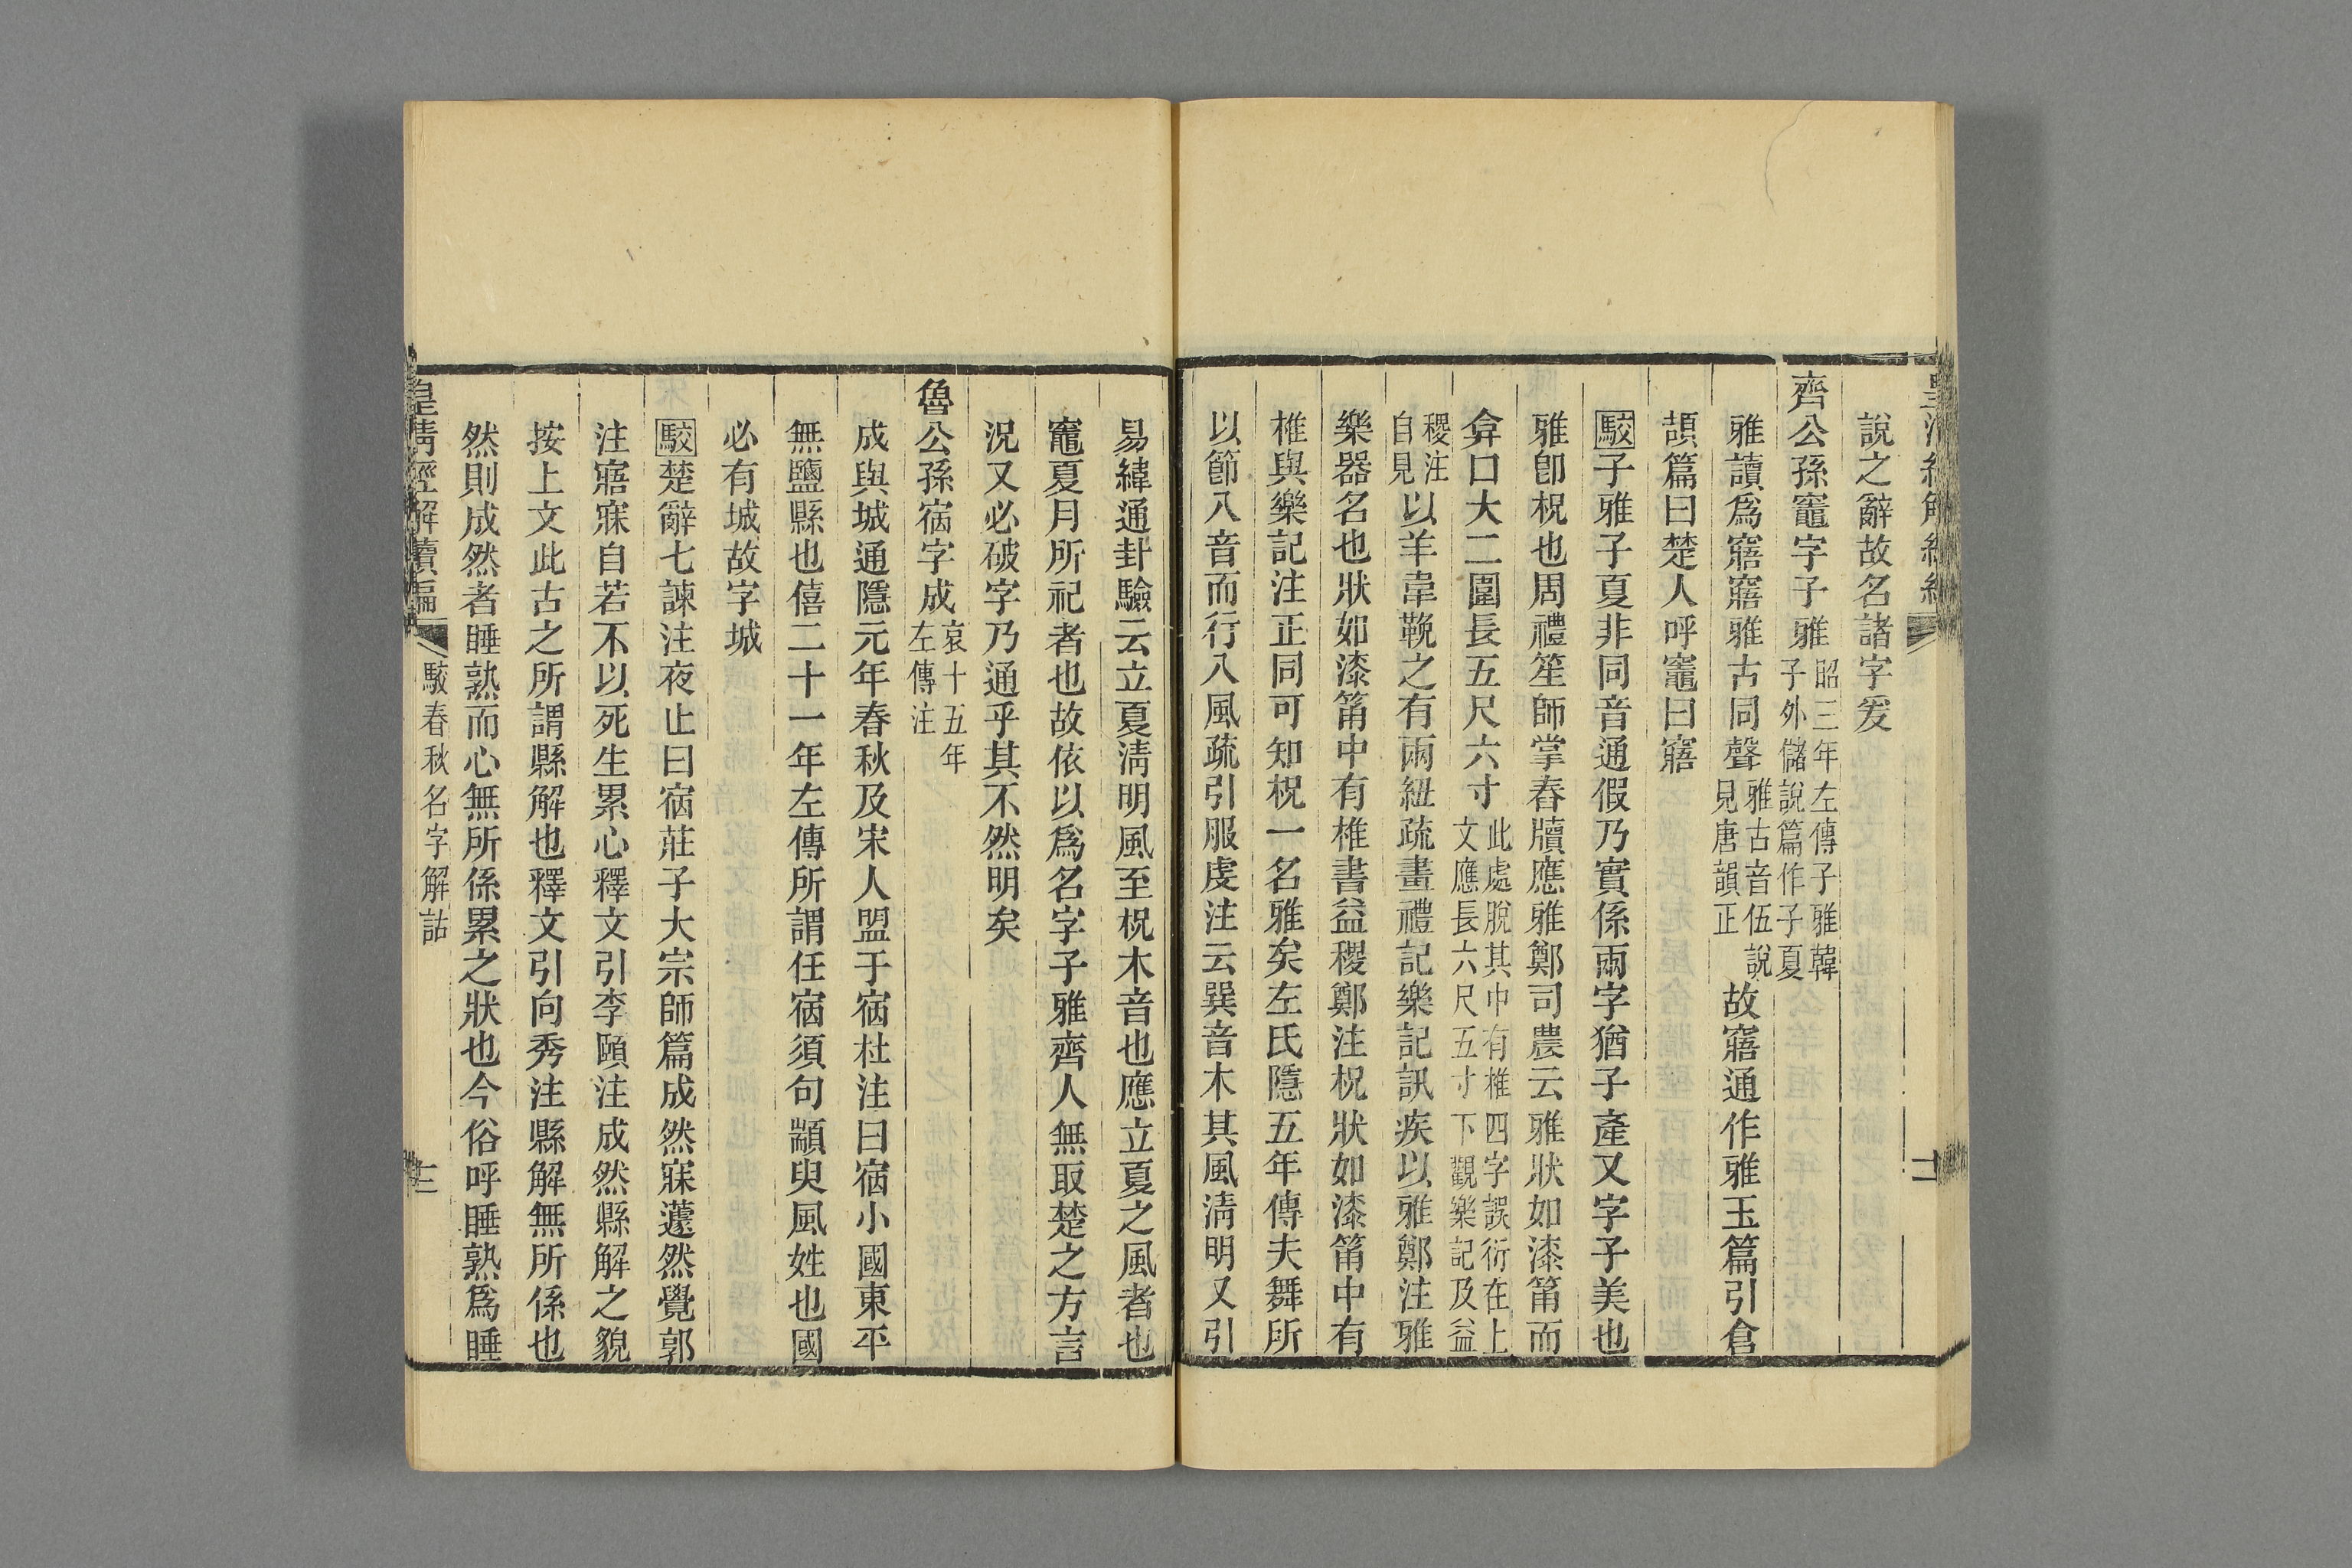 說之辭故名諸字爰
齊公孫竈字子雅昭三年左傳子雅韓子外儲說篇作子夏
雅讀爲寤寤雅古同聲雅古音伍說見唐韻正故寤通作雅玉篇引倉
頡篇曰楚人呼竈曰寤
駮子雅子夏非同音通假乃實係兩字猶子產又字子美也
雅卽柷也周禮笙師掌舂牘應雅鄭司農云雅狀如漆筩而
弇口大二圍長五尺六寸此處脫其中有椎四字誤衍在上文應長六尺五寸下觀樂記及益
稷注自見以羊韋鞔之有兩紐疏畫禮記樂記訊疾以雅鄭注雅
樂器名也狀如漆筩中有椎書益稷鄭注柷狀如漆筩中有
椎與樂記注正同可知柷一名雅矣左氏隱五年傳夫舞所
以節八音而行八風疏引服虔注云巽音木其風淸明又引
易緯通卦驗云立夏淸明風至柷木音也應立夏之風者也
竈夏月所祀者也故依以爲名字子雅齊人無取楚之方言
況又必破字乃通乎其不然明矣
魯公孫宿字成哀十五年左傳注
成與城通隱元年春秋及宋人盟于宿杜注曰宿小國東平
無鹽縣也僖二十一年左傳所謂任宿須句顓臾風姓也國
必有城故字城
駮楚辭七諫注夜止曰宿莊子大宗師篇成然寐蘧然覺郭
注寤寐自若不以死生累心釋文引李頤注成然縣解之貌
按上文此古之所謂縣解也釋文引向秀注縣解無所係也
然則成然者睡熟而心無所係累之狀也今俗呼睡熟爲睡
皇清經解續編
駮春秋名字解詁